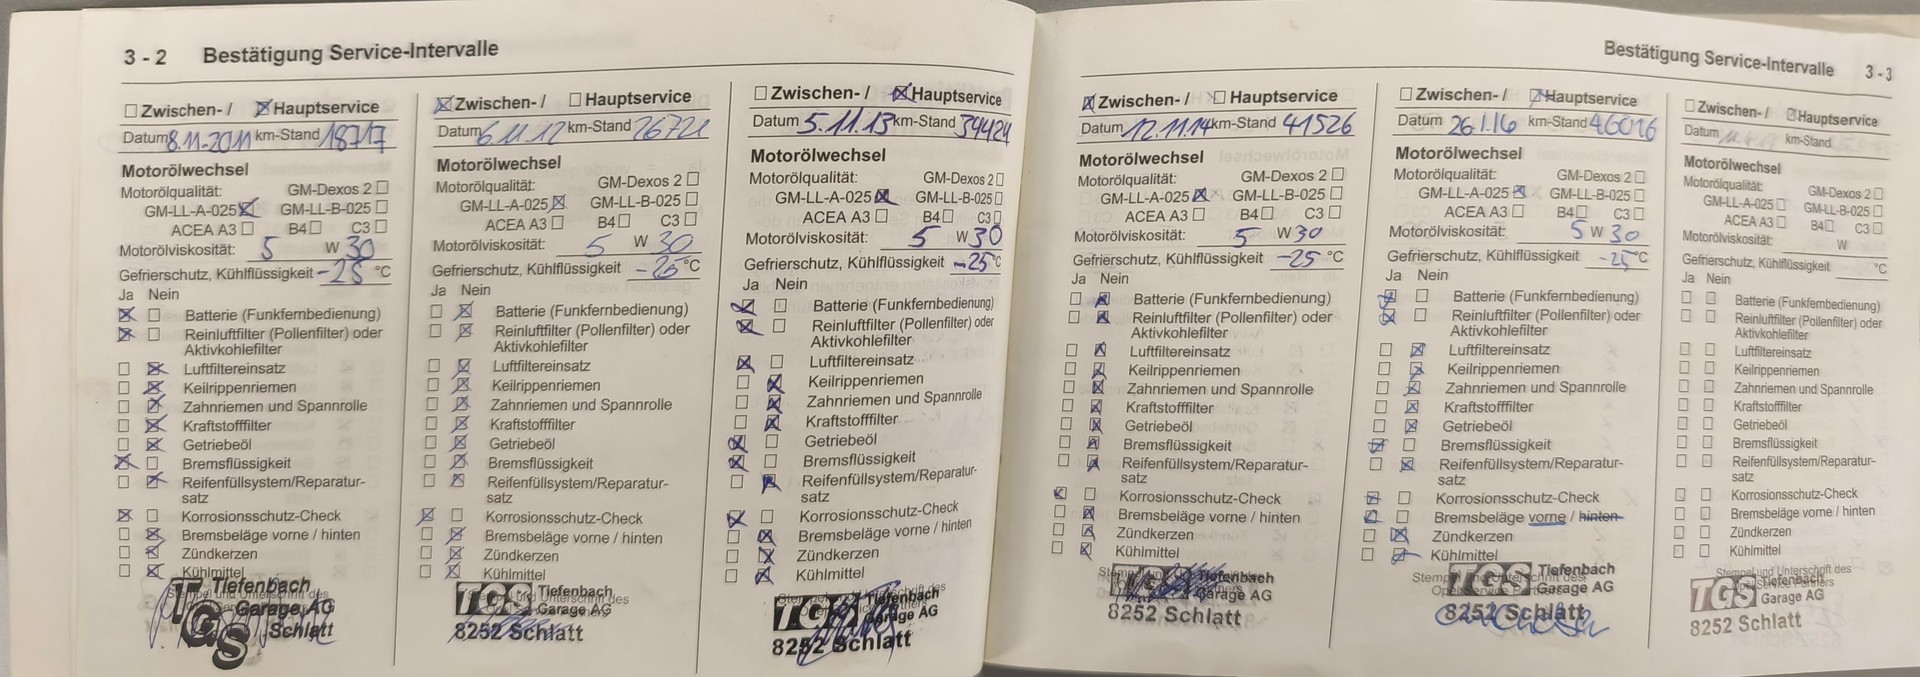 3 - 2 Bestätigung Service-Intervalle
Zwischen- / Hauptservice
Datum 8.11.2011 km-Stand 18717
Motorölwechsel
Motorölqualität: GM-Dexos 2
GM-LL-A-025 GM-LL-B-025
ACEA A3 B4 C3
Motorölviskosität: 5 W 30
Gefrierschutz, Kühlflüssigkeit -25 °C
Ja Nein
Batterie (Funkfernbedienung)
Reinluftfilter (Pollenfilter) oder
Aktivkohlefilter
Luftfiltereinsatz
Keilrippenriemen
Zahnriemen und Spannrolle
Kraftstofffilter
Getriebeöl
Bremsflüssigkeit
Reifenfüllsystem/Reparatur-
satz
Korrosionsschutz-Check
Bremsbeläge vorne / hinten
Zündkerzen
Kühlmittel
Stempel und Unterschrift des
TGS Tiefenbach
Garage AG
Schlatt
Zwischen- / Hauptservice
Datum 6.11.12 km-Stand 26721
Motorölwechsel
Motorölqualität: GM-Dexos 2
GM-LL-A-025 GM-LL-B-025
ACEA A3 B4 C3
Motorölviskosität: 5 W 30
Gefrierschutz, Kühlflüssigkeit °C
Ja Nein
Batterie (Funkfernbedienung)
Reinluftfilter (Pollenfilter) oder
Aktivkohlefilter
Luftfiltereinsatz
Keilrippenriemen
Zahnriemen und Spannrolle
Kraftstofffilter
Getriebeöl
Bremsflüssigkeit
Reifenfüllsystem/Reparatur-
satz
Korrosionsschutz-Check
Bremsbeläge vorne / hinten
Zündkerzen
Kühlmittel
Stempel und Unterschrift des
TGS Tiefenbach
Garage AG
8252 Schlatt
Zwischen- / Hauptservice
Datum 5.11.13 km-Stand 34424
Motorölwechsel
Motorölqualität: GM-Dexos 2
GM-LL-A-025 GM-LL-B-025
ACEA A3 B4 C3
Motorölviskosität: 5 W 30
Gefrierschutz, Kühlflüssigkeit -25 °C
Ja Nein
Batterie (Funkfernbedienung)
Reinluftfilter (Pollenfilter) oder
Aktivkohlefilter
Luftfiltereinsatz
Keilrippenriemen
Zahnriemen und Spannrolle
Kraftstofffilter
Getriebeöl
Bremsflüssigkeit
Reifenfüllsystem/Reparatur-
satz
Korrosionsschutz-Check
Bremsbeläge vorne / hinten
Zündkerzen
Kühlmittel
Stempel und Unterschrift des
TGS Tiefenbach
Garage AG
8252 Schlatt
Bestätigung Service-Intervalle 3 - 3
Zwischen- / Hauptservice
Datum 12.11.14 km-Stand 41526
Motorölwechsel
Motorölqualität: GM-Dexos 2
GM-LL-A-025 GM-LL-B-025
ACEA A3 B4 C3
Motorölviskosität: 5 W 30
Gefrierschutz, Kühlflüssigkeit -25 °C
Ja Nein
Batterie (Funkfernbedienung)
Reinluftfilter (Pollenfilter) oder
Aktivkohlefilter
Luftfiltereinsatz
Keilrippenriemen
Zahnriemen und Spannrolle
Kraftstofffilter
Getriebeöl
Bremsflüssigkeit
Reifenfüllsystem/Reparatur-
satz
Korrosionsschutz-Check
Bremsbeläge vorne / hinten
Zündkerzen
Kühlmittel
TGS Tiefenbach
Garage AG
8252 Schlatt
Zwischen- / Hauptservice
Datum 26.1.16 km-Stand 46016
Motorölwechsel
Motorölqualität: GM-Dexos 2
GM-LL-A-025 GM-LL-B-025
ACEA A3 B4 C3
Motorölviskosität: 5 W 30
Gefrierschutz, Kühlflüssigkeit -25 °C
Ja Nein
Batterie (Funkfernbedienung)
Reinluftfilter (Pollenfilter) oder
Aktivkohlefilter
Luftfiltereinsatz
Keilrippenriemen
Zahnriemen und Spannrolle
Kraftstofffilter
Getriebeöl
Bremsflüssigkeit
Reifenfüllsystem/Reparatur-
satz
Korrosionsschutz-Check
Bremsbeläge vorne / hinten
Zündkerzen
Kühlmittel
Stempel und Unterschrift des
TGS Tiefenbach
Garage AG
8252 Schlatt
Zwischen- / Hauptservice
Datum km-Stand
Motorölwechsel
Motorölqualität: GM-Dexos 2
GM-LL-A-025 GM-LL-B-025
ACEA A3 B4 C3
Motorölviskosität: W
Gefrierschutz, Kühlflüssigkeit °C
Ja Nein
Batterie (Funkfernbedienung)
Reinluftfilter (Pollenfilter) oder
Aktivkohlefilter
Luftfiltereinsatz
Keilrippenriemen
Zahnriemen und Spannrolle
Kraftstofffilter
Getriebeöl
Bremsflüssigkeit
Reifenfüllsystem/Reparatur-
satz
Korrosionsschutz-Check
Bremsbeläge vorne / hinten
Zündkerzen
Kühlmittel
Stempel und Unterschrift des
TGS Tiefenbach
Garage AG
8252 Schlatt